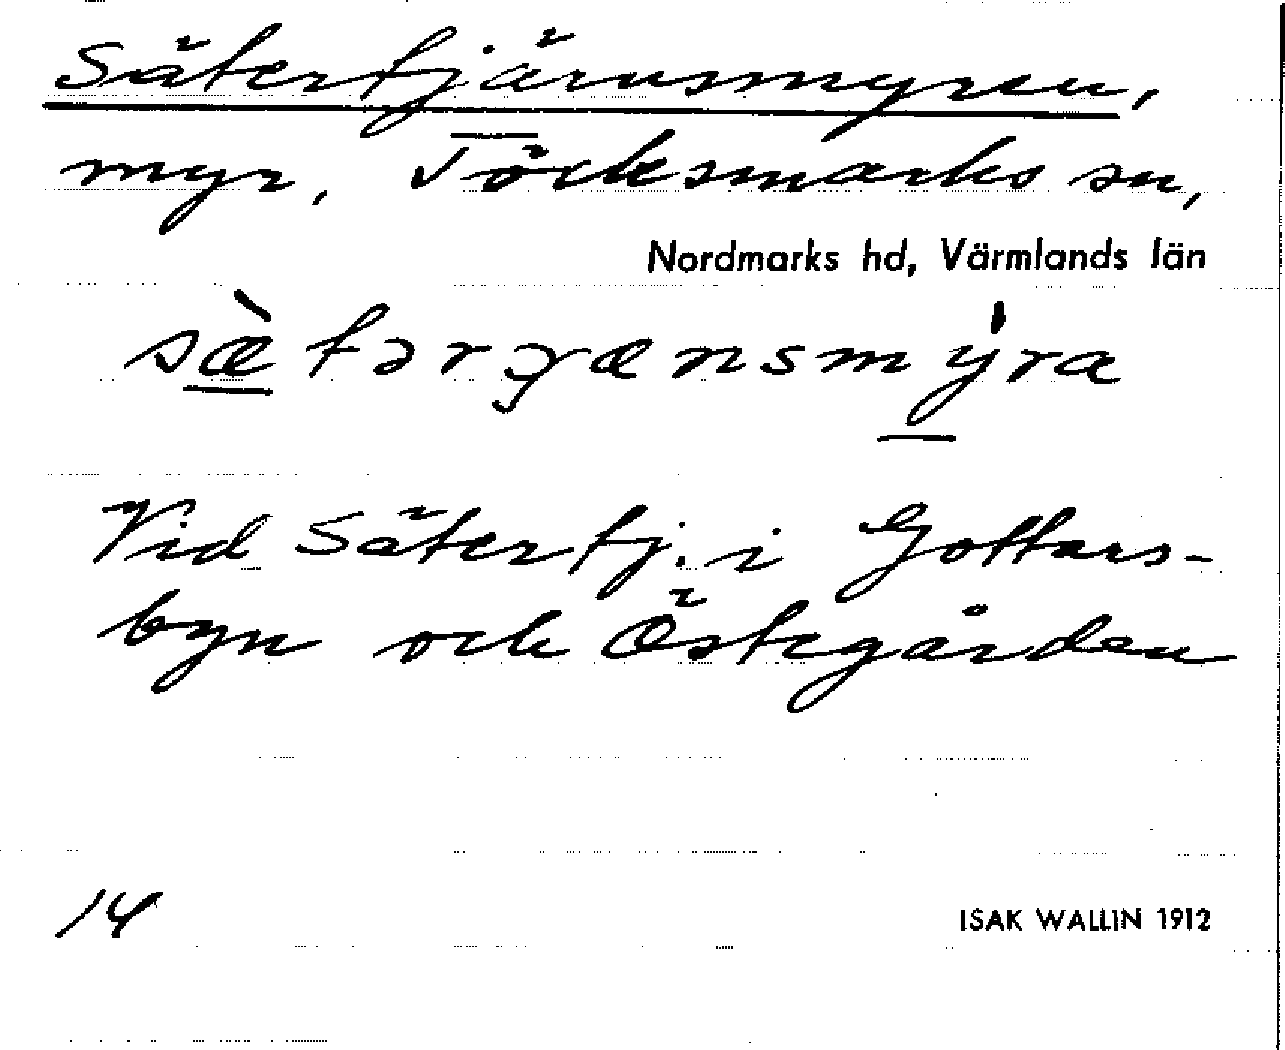 Sätertjärnsmyren,
myr, Töcksmarks sn,
Nordmarks hd, Värmlands län
sæ̀tərɟænsmýra
Vid Sätertj. i Gottars-
byn och Östegården
14
ISAK WALLIN 1912